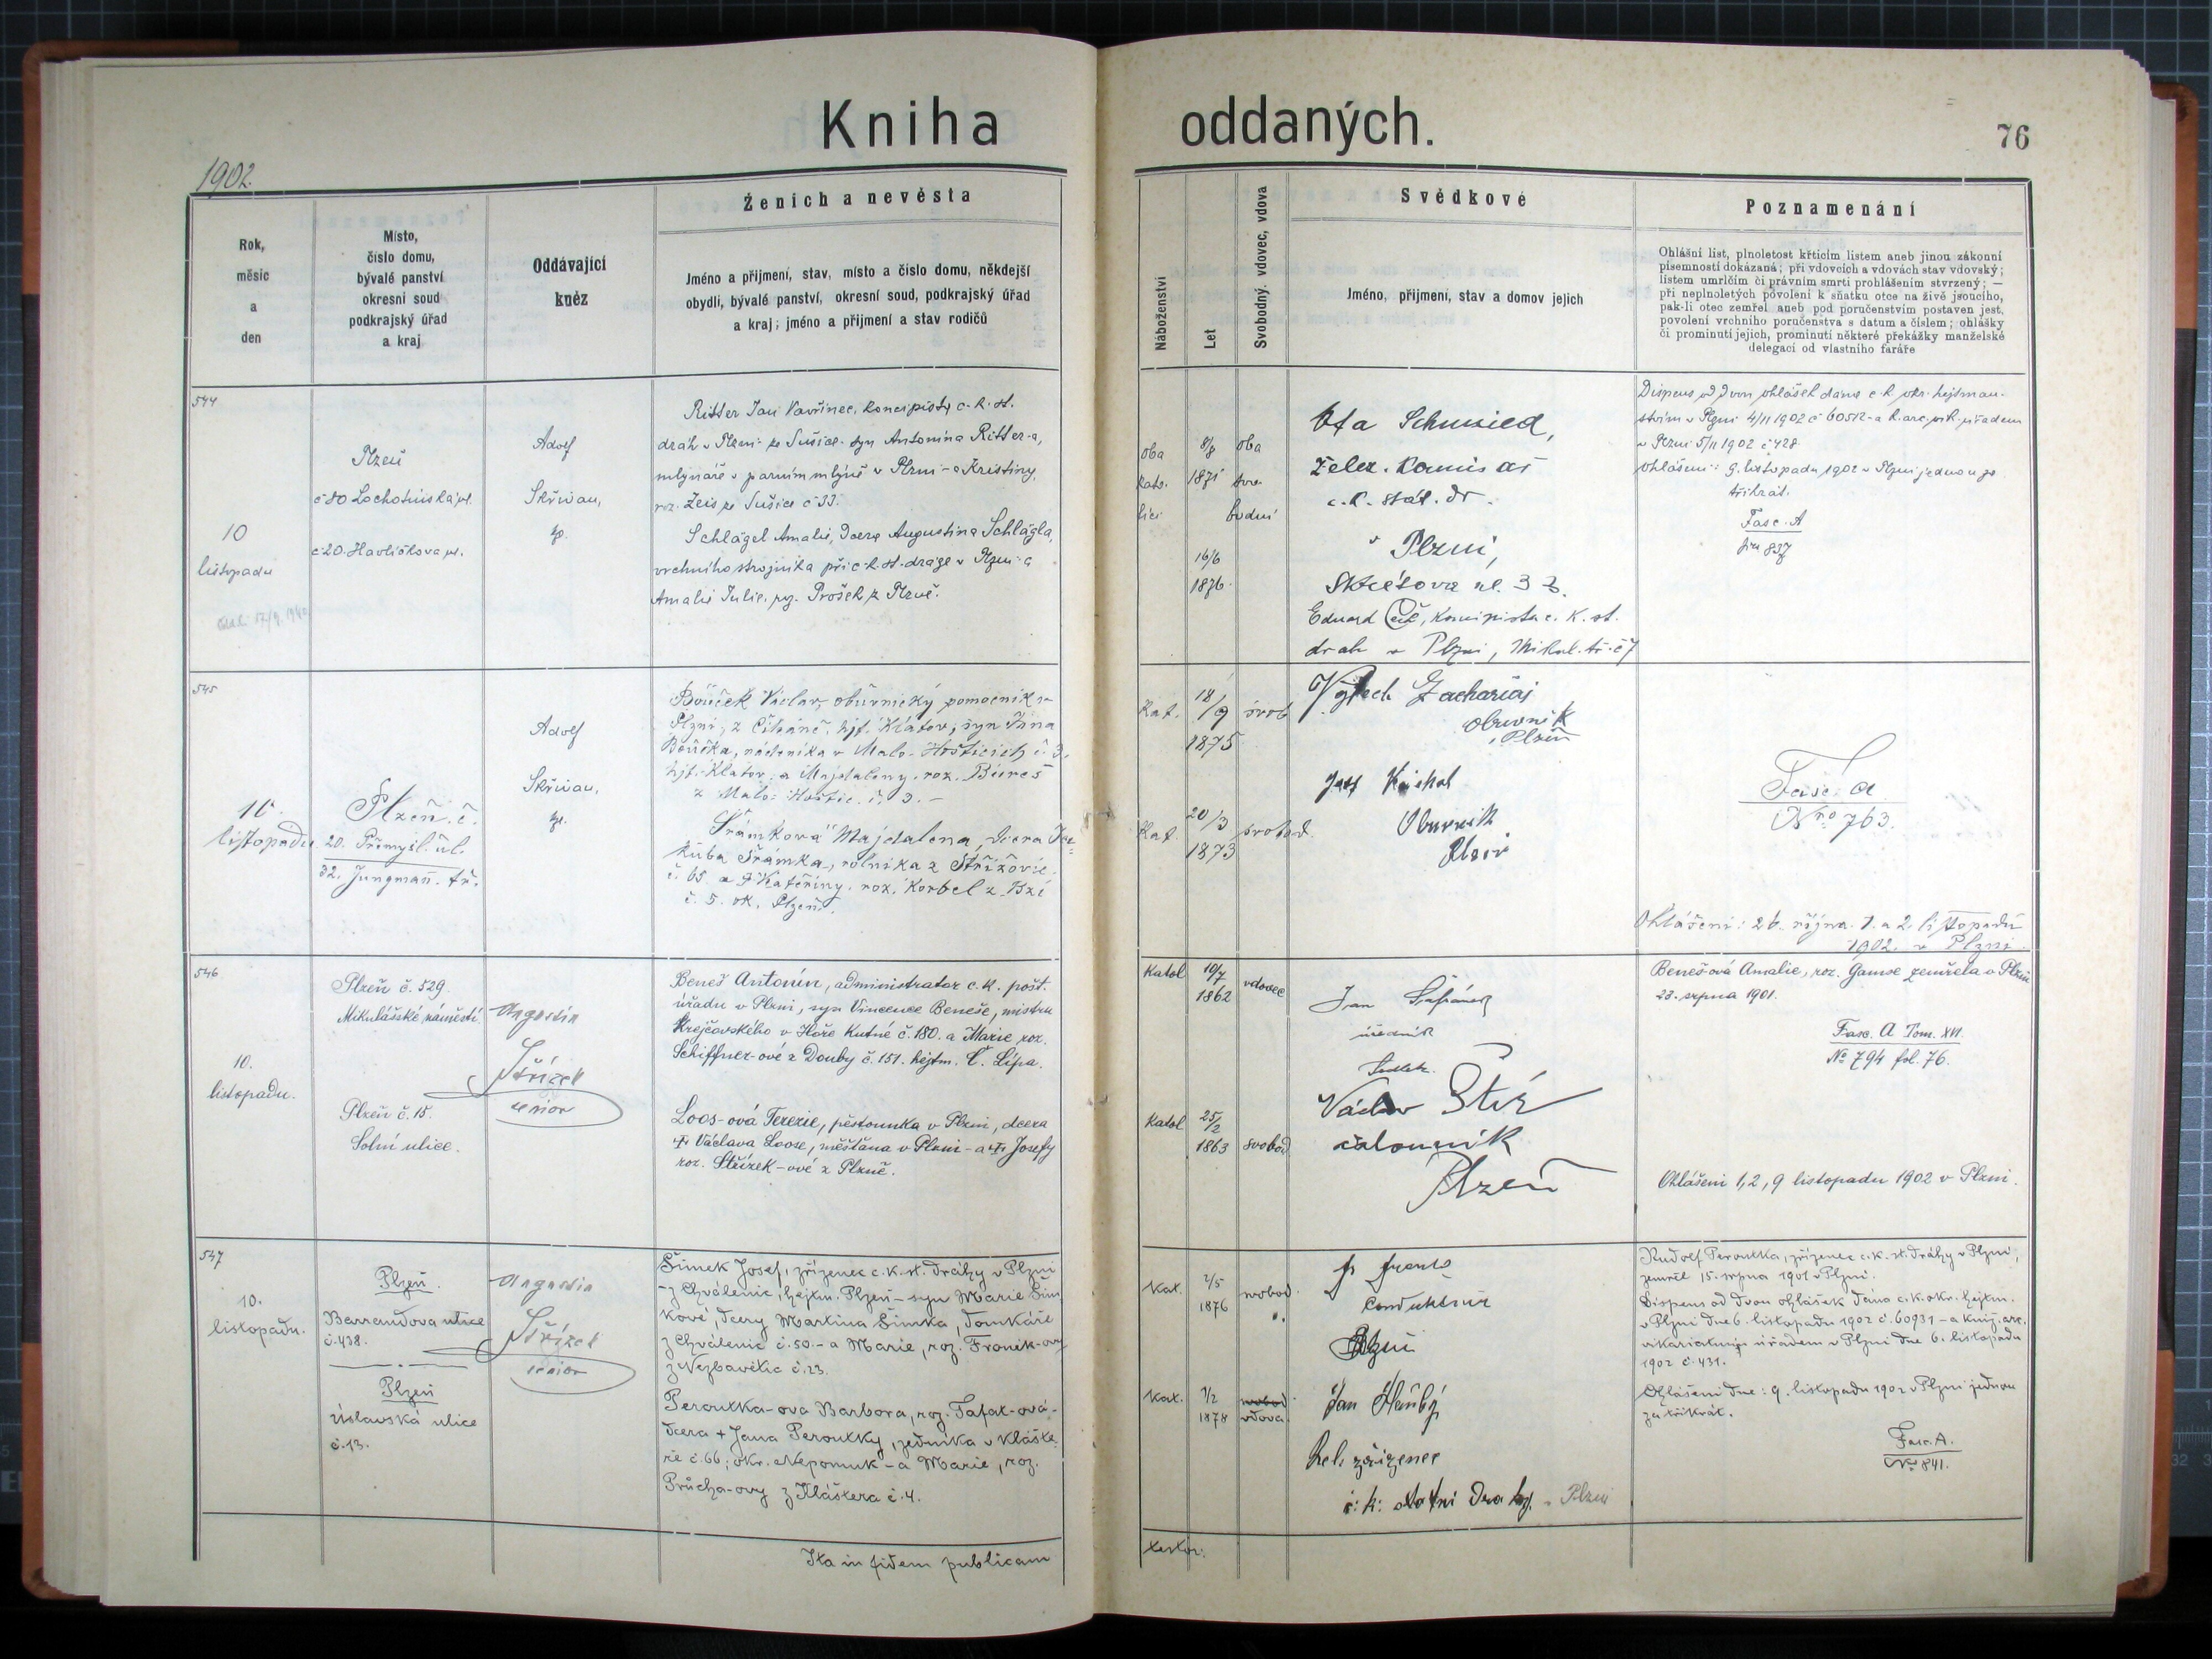 Kniha oddaných.
76
1902.
Rok,
měsíc
a
den
Místo,
číslo domu,
bývalé panství
okresní soud
podkrajský úřad
a kraj
Oddávající
kněz
Ženich a nevěsta
Jméno a příjmení, stav, místo a číslo domu, někdejší
obydlí, bývalé panství, okresní soud, podkrajský úřad
a kraj; jméno a příjmení a stav rodičů
Náboženství
Let
Svobodný, vdovec, vdova
Svědkové
Jméno, příjmení, stav a domov jejich
Poznamenání
Ohlášní list, plnoletost křticím listem aneb jinou zákonní
písemností dokázaná; při vdovcích a vdovách stav vdovský;
listem umrlčím či právním smrti prohlášením stvrzený; —
při neplnoletých povolení k sňatku otce na živě jsoucího,
pak-li otec zemřel aneb pod poručenstvím postaven jest,
povolení vrchního poručenstva s datum a číslem; ohlášky
či prominutí jejich, prominutí některé překážky manželské
delegací od vlastního faráře
544
10
listopadu
Plzeň
č 80 Lochotínská ul.
č 20. Havlíčkova ul.
Adolf
Skřivan,
kp.
Ritter Jan Vavřinec, koncipista c. k. st.
drah v Plzni - ze Sušice - syn Antonína Ritter-a,
mlynáře v parním mlýně v Plzni - a Kristiny,
roz. Zeis ze Sušice č 33.
Schlägel Amalie, dcera Augustina Schlägla,
vrchního strojníka při c. k. st. dráze v Plzni - a
Amalie Julie, roz. Prošek z Plzně.
oba
kato-
líci
8/8
1871
16/6
1876.
oba
svo-
bodní
Ota Schmied,
želez. komisař
c. k. stát. dr.
v Plzni,
Skrétova ul. 32.
Eduard koncipista c. k. st.
drah v Plzni, Mikul. tř. č 7
Dispens od dvou ohlášek dána c. k. okr. hejtman-
stvím v Plzni 4/11 1902 č 60512 - a k. arc. vik. úřadem
v Plzni 5/11 1902 č 428.
Ohlášeni: 9. listopadu 1902 v Plzni jednou za
třikrát.
Fasc. A
837
545
10.
listopadu
Plzeň. č.
20. Přemysl. ul.
32. Jungmann. tř.
Adolf
Skřivan,
kp.
Bouček Václav, obuvnický pomocník v
Plzni, z hejt. Klatov, syn Jana
Boučka, v Malo- Hošticích č. 3.
hejt. Klatov a Majdaleny, roz. Bureš
z Malo- Hoštic. č. 3. -
Šrámková Majdalena, dcera Ja-
kuba Šrámka, rolníka z Střížovic
č. 65 a † Kateřiny, roz. Korbel z Bzí
č. 5. ok. Plzeň.
Kat.
18/9
1875
svob
Kat.
20/3
1873
svobod.
Zachariáš
obuvník
Plzeň
Josef
Obuvník
Plzeň
Fasc. a
Nro 763.
Ohlášeni: 26. října. 1. a 2. listopadu
1902. v Plzni.
546
10.
listopadu.
Plzeň č. 529.
Mikulášské náměstí.
Plzeň č. 15.
Solní ulice.
Augustin
Střízek
senior
Beneš Antonín, administrator c. k. pošt.
úřadu v Plzni, syn Vincence Beneše, mistra
krejčovského v Hoře Kutné č. 180. a Marie roz.
Schiffner-ové z Douby č. 151. hejtm. Č. Lípa.
Loos-ová Terezie, pěstounka v Plzni, dcera
† Václava Loose, měšťana v Plzni - a † Josefy
roz. Střízek-ové z Plzně.
Katol
10/7
1862
vdovec
Katol
25/2
1863
svobod
Jan Šafránek
úředník
Václav
čalouník
Plzeň
Benešová Amalie, roz. Gamse zemřela v Plzni
23. srpna 1901.
Fasc. A Tom. XVI.
No 794 fol. 76.
Ohlášeni 1, 2, 9 listopadu 1902 v Plzni.
547
10.
listopadu.
Plzeň.
Barrandova ulice
č. 438.
Plzeň
Úslavská ulice
č. 13.
Augustin
Střízek
senior
Šimek Josef, zřízenec c. k. st. dráhy v Plzni
- z Chválenic, hejtm. Plzeň - syn Marie Šim-
kové, dcery Martina Šimka, domkáře
z Chválenic č. 50. - a Marie, roz. Froněk-ovy
z Nezbavětic č. 23.
Peroutka-ova Barbora, roz. Tafat-ová -
dcera † Jana Peroutky, zedníka v Klášte-
ře č. 66; okr. Nepomuk - a Marie, roz.
Průcha-ovy z Kláštera č. 4.
Kat.
2/5
1876
svobod.
Kat.
7/2
1878
svobod
vdova
condukteur
Plzni
Jan
žel. zřízenec
c: k: statní Drahy. v Plzni
Rudolf Peroutka, zřízenec c. k. st. dráhy v Plzni,
zemřel 15. srpna 1901 v Plzni.
Dispens od dvou ohlášek dána c. k. okr. hejtm.
v Plzni dne 6. listopadu 1902 č. 60931 - a kníž. arc.
vikariatním úřadem v Plzni dne 6. listopadu
1902 č. 431.
Ohlášeni dne: 9. listopadu 1902 v Plzni jednou
za třikrát.
Fasc. A.
No 841.
Ita in fidem publicam
testor.